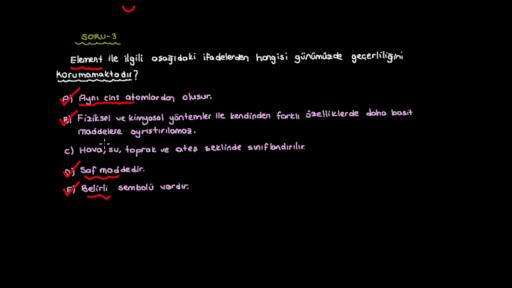 SORU-3
Element ile ilgili aşağıdaki ifadelerden hangisi günümüzde geçerliliğini
korumamaktadır?
A) Aynı cins atomlardan oluşur.
B) Fiziksel ve kimyasal yöntemler ile kendinden farklı özelliklerde daha basit
maddelere ayrıştırılamaz.
C) Hava, su, toprak ve ateş şeklinde sınıflandırılır.
D) Saf maddedir.
E) Belirli sembolü vardır.